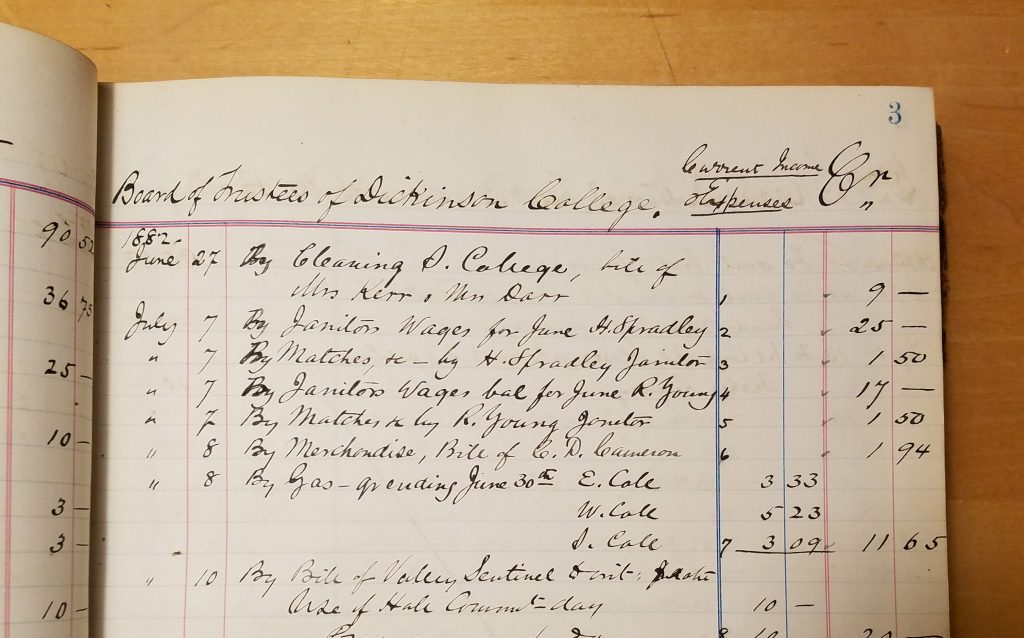 3
Board of Trustees of Dickinson College. Current Income Expenses Cr
1882.
June 27 By Cleaning S. College, bill of
Mrs Kerr & Mrs Darr 1 9 —
July 7 By Janitors Wages for June H. Spradley 2 25 —
" 7 By Matches, &c — by H. Spradley Janitor 3 1 50
" 7 By Janitors Wages bal for June R. Young 4 17 —
" 7 By Matches &c by R. Young Janitor 5 1 50
" 8 By Merchandise, Bill of C. D. Cameron 6 1 94
" 8 By Gas – qr ending June 30th E. Coll 3 33
W. Coll 5 23
S. Coll 7 3 09 11 65
" 10 By Bill of Valley Sentinel
Use of Hall Commt- day 10 —
90 52
36 75
25 —
10 —
3 —
3 —
10 —